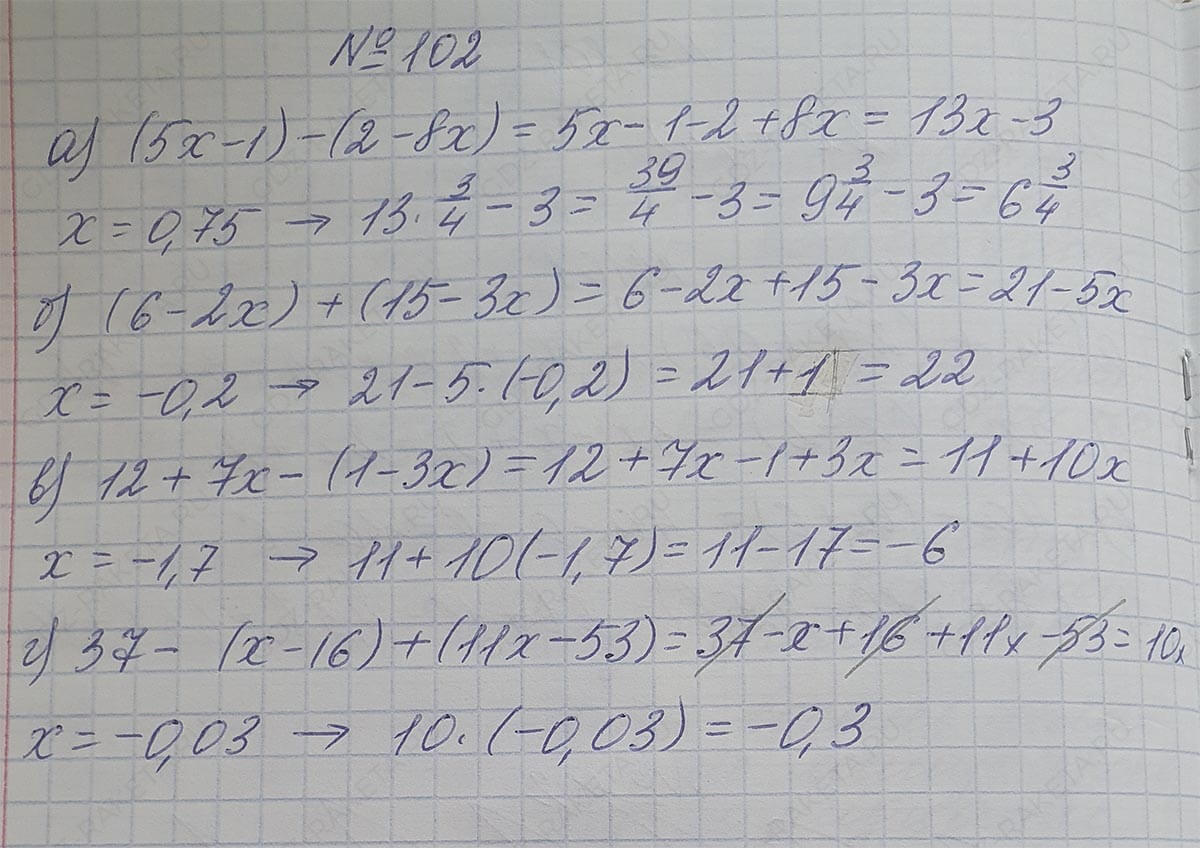 № 102
а) (5x-1)-(2-8x) = 5x-1-2+8x = 13x-3
x = 0,75 → 13·3/4 - 3 = 39/4 - 3 = 9 3/4 - 3 = 6 3/4
б) (6-2x) + (15-3x) = 6-2x+15-3x = 21-5x
x = -0,2 → 21-5·(-0,2) = 21+1 = 22
в) 12 + 7x - (1-3x) = 12 + 7x - 1 + 3x = 11 + 10x
x = -1,7 → 11 + 10(-1,7) = 11-17 = -6
г) 37 - (x-16) + (11x-53) = 37-x+16+11x-53 = 10x
x = -0,03 → 10·(-0,03) = -0,3